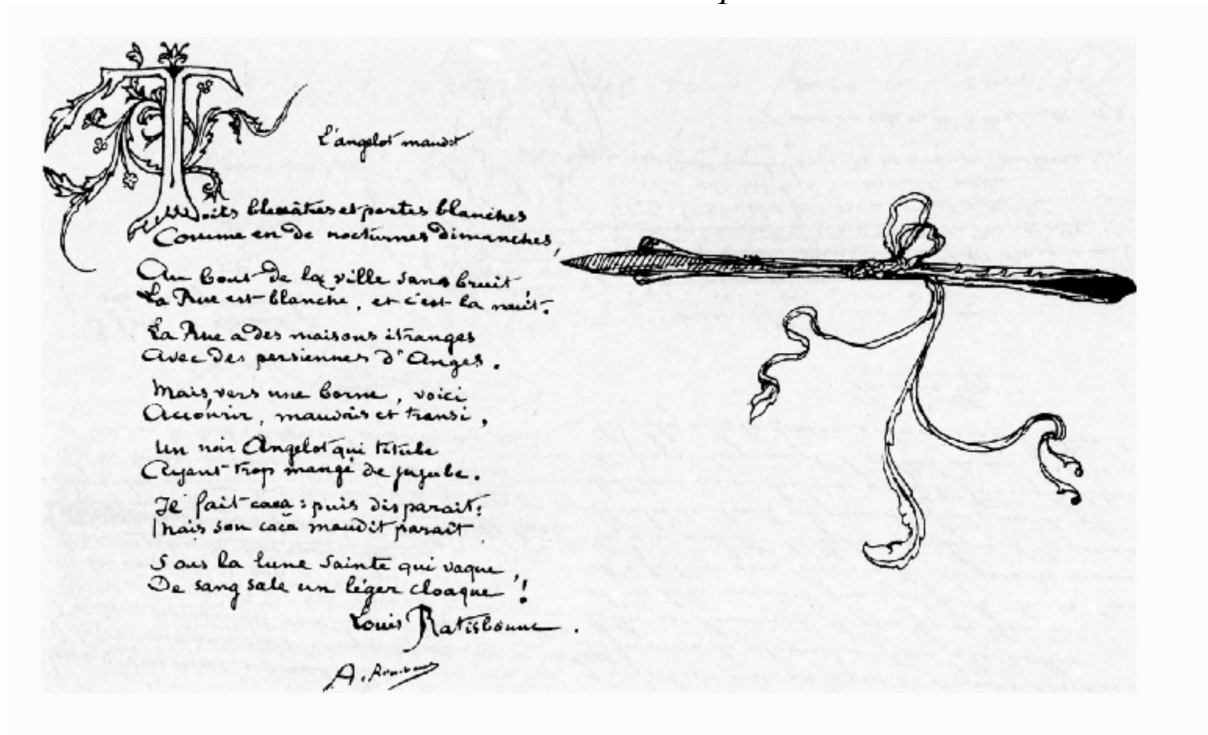 L'angelot maudit
Toits bleuâtres et portes blanches
Comme en de nocturnes dimanches,
Au bout de la ville sans bruit
La Rue est blanche, et c'est la nuit.
La Rue a des maisons étranges
Avec des persiennes d'Anges.
Mais, vers une borne, voici
Accourir, mauvais et transi,
Un noir Angelot qui titube
Ayant trop mangé de jujube.
Il fait caca : puis disparaît :
Mais son caca maudit paraît,
Sous la lune sainte qui vaque,
De sang sale un léger cloaque !
Louis Ratisbonne.
A. Rimbaud